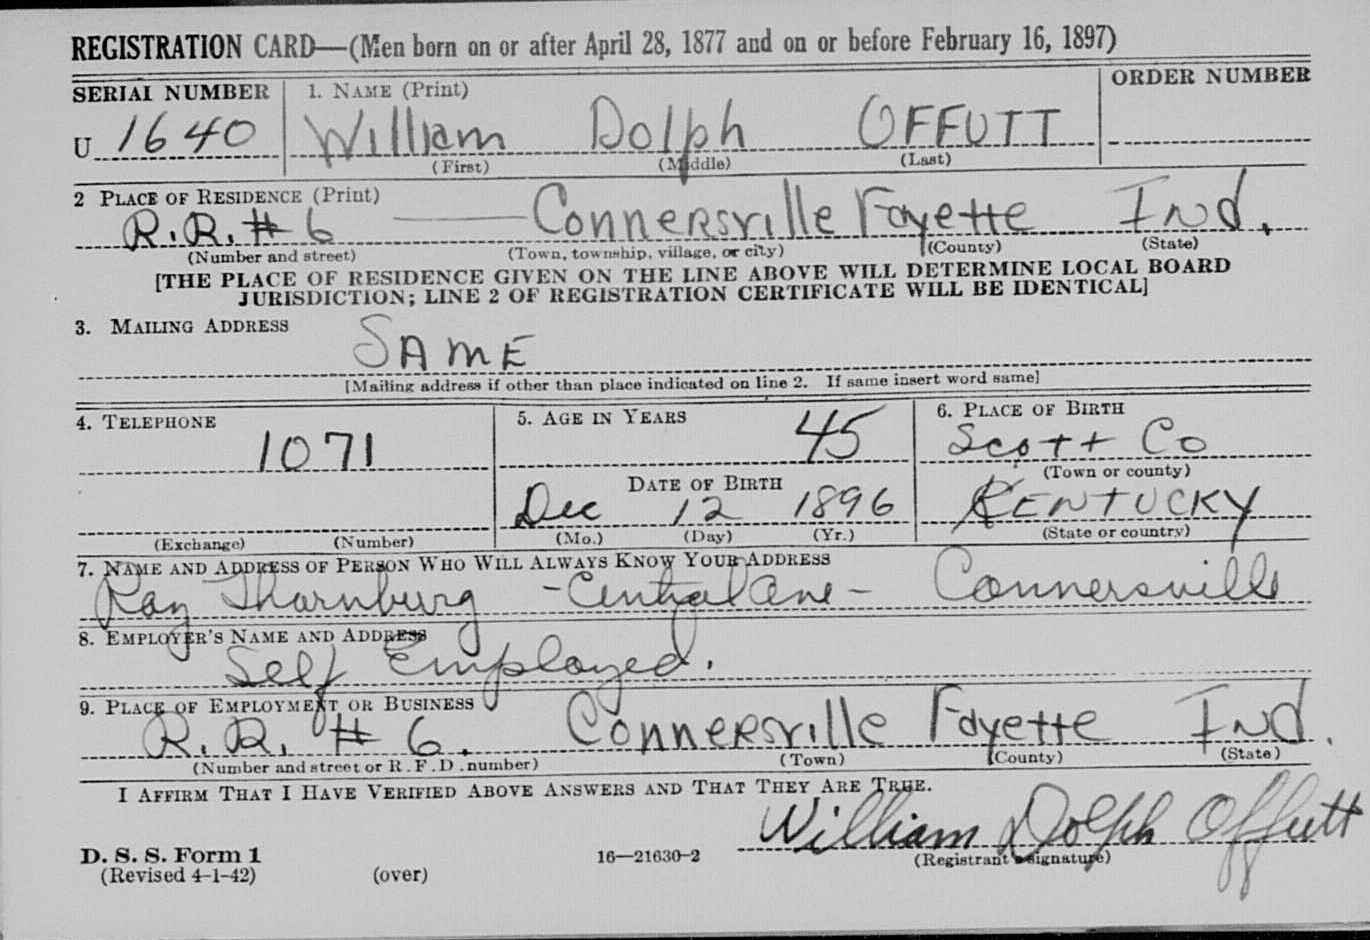 REGISTRATION CARD—(Men born on or after April 28, 1877 and on or before February 16, 1897)
SERIAL NUMBER 1. NAME (Print) ORDER NUMBER
U 1640 William Dolph OFFUTT
(First) (Middle) (Last)
2 PLACE OF RESIDENCE (Print)
R.R. # 6 Connersville Fayette Ind.
(Number and street) (Town, township, village, or city) (County) (State)
[THE PLACE OF RESIDENCE GIVEN ON THE LINE ABOVE WILL DETERMINE LOCAL BOARD
JURISDICTION; LINE 2 OF REGISTRATION CERTIFICATE WILL BE IDENTICAL]
3. MAILING ADDRESS
SAME
[Mailing address if other than place indicated on line 2. If same insert word same]
4. TELEPHONE 5. AGE IN YEARS 6. PLACE OF BIRTH
1071 45 Scott Co
(Town or county)
DATE OF BIRTH
Dec 12 1896 KENTUCKY
(Exchange) (Number) (Mo.) (Day) (Yr.) (State or country)
7. NAME AND ADDRESS OF PERSON WHO WILL ALWAYS KNOW YOUR ADDRESS
Ray Thornburg - Central Ave - Connersville
8. EMPLOYER'S NAME AND ADDRESS
Self Employed.
9. PLACE OF EMPLOYMENT OR BUSINESS
R.R. # 6. Connersville Fayette Ind.
(Number and street or R. F. D. number) (Town) (County) (State)
I AFFIRM THAT I HAVE VERIFIED ABOVE ANSWERS AND THAT THEY ARE TRUE.
William Dolph Offutt
D. S. S. Form 1 16—21630-2 (Registrant's signature)
(Revised 4-1-42) (over)